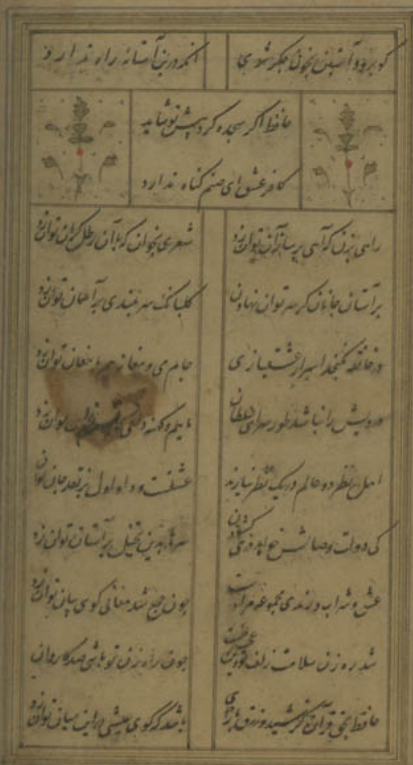 کو برو و آستین بخون جگر شوی
انکه درین آستانه راه ندارد
حافظ اگر سجده کرد پیش تو شاید
کافر عشق ای صنم کناه ندارد
راهی بزن که آهی بر ساز آن توان زد
شعری بخوان که با آن رطل کران توان زد
بر آستان جانان کر سر توان نهادن
کلبانک سربلندی بر آسمان توان زد
در خانقه نکنجد اسرار عشق بازی
جام می مغانه هم با مغان توان زد
درویش را نباشد سرای سلطان
ماییم و کهنه توان زد
اهل نظر دو عالم در یک نظر ببازند
عشقست و داو اول بر نقد جان توان
کی دولت وصالش خواهد دری کشودن
سرها بدین تخیل بر آستان توان زد
عشق و شباب و رندی مجموعه مرادست
چون جمع شد معانی کوی بیان توان زد
شد ره زن سلامت زلف تو وین عجب نیست
چون راه زن تو باشی صد کاروان
حافظ بحق قرآن کز شید و زرق بازآی
باشد که کوی عیشی در این میان توان زد